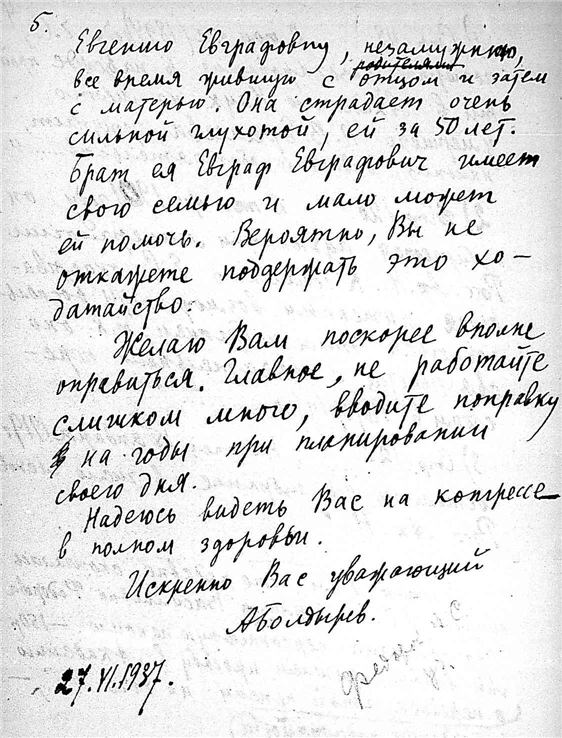 5.
Евгению Евграфовну, незамужнюю,
родителями
все время жившую с отцом и затем
с матерью. Она страдает очень
сильной глухотой, ей за 50 лет.
Брат ея Евграф Евграфович имеет
свою семью и мало может
ей помочь. Вероятно, Вы не
откажете поддержать это хо-
датайство.
Желаю Вам поскорее вполне
оправиться. Главное, не работайте
слишком много, вводите поправку
на годы при планировании
своего дня.
Надеюсь видеть Вас на конгрессе
в полном здоровьи.
Искренно Вас уважающий
АБолдырев.
27.VI.1937.